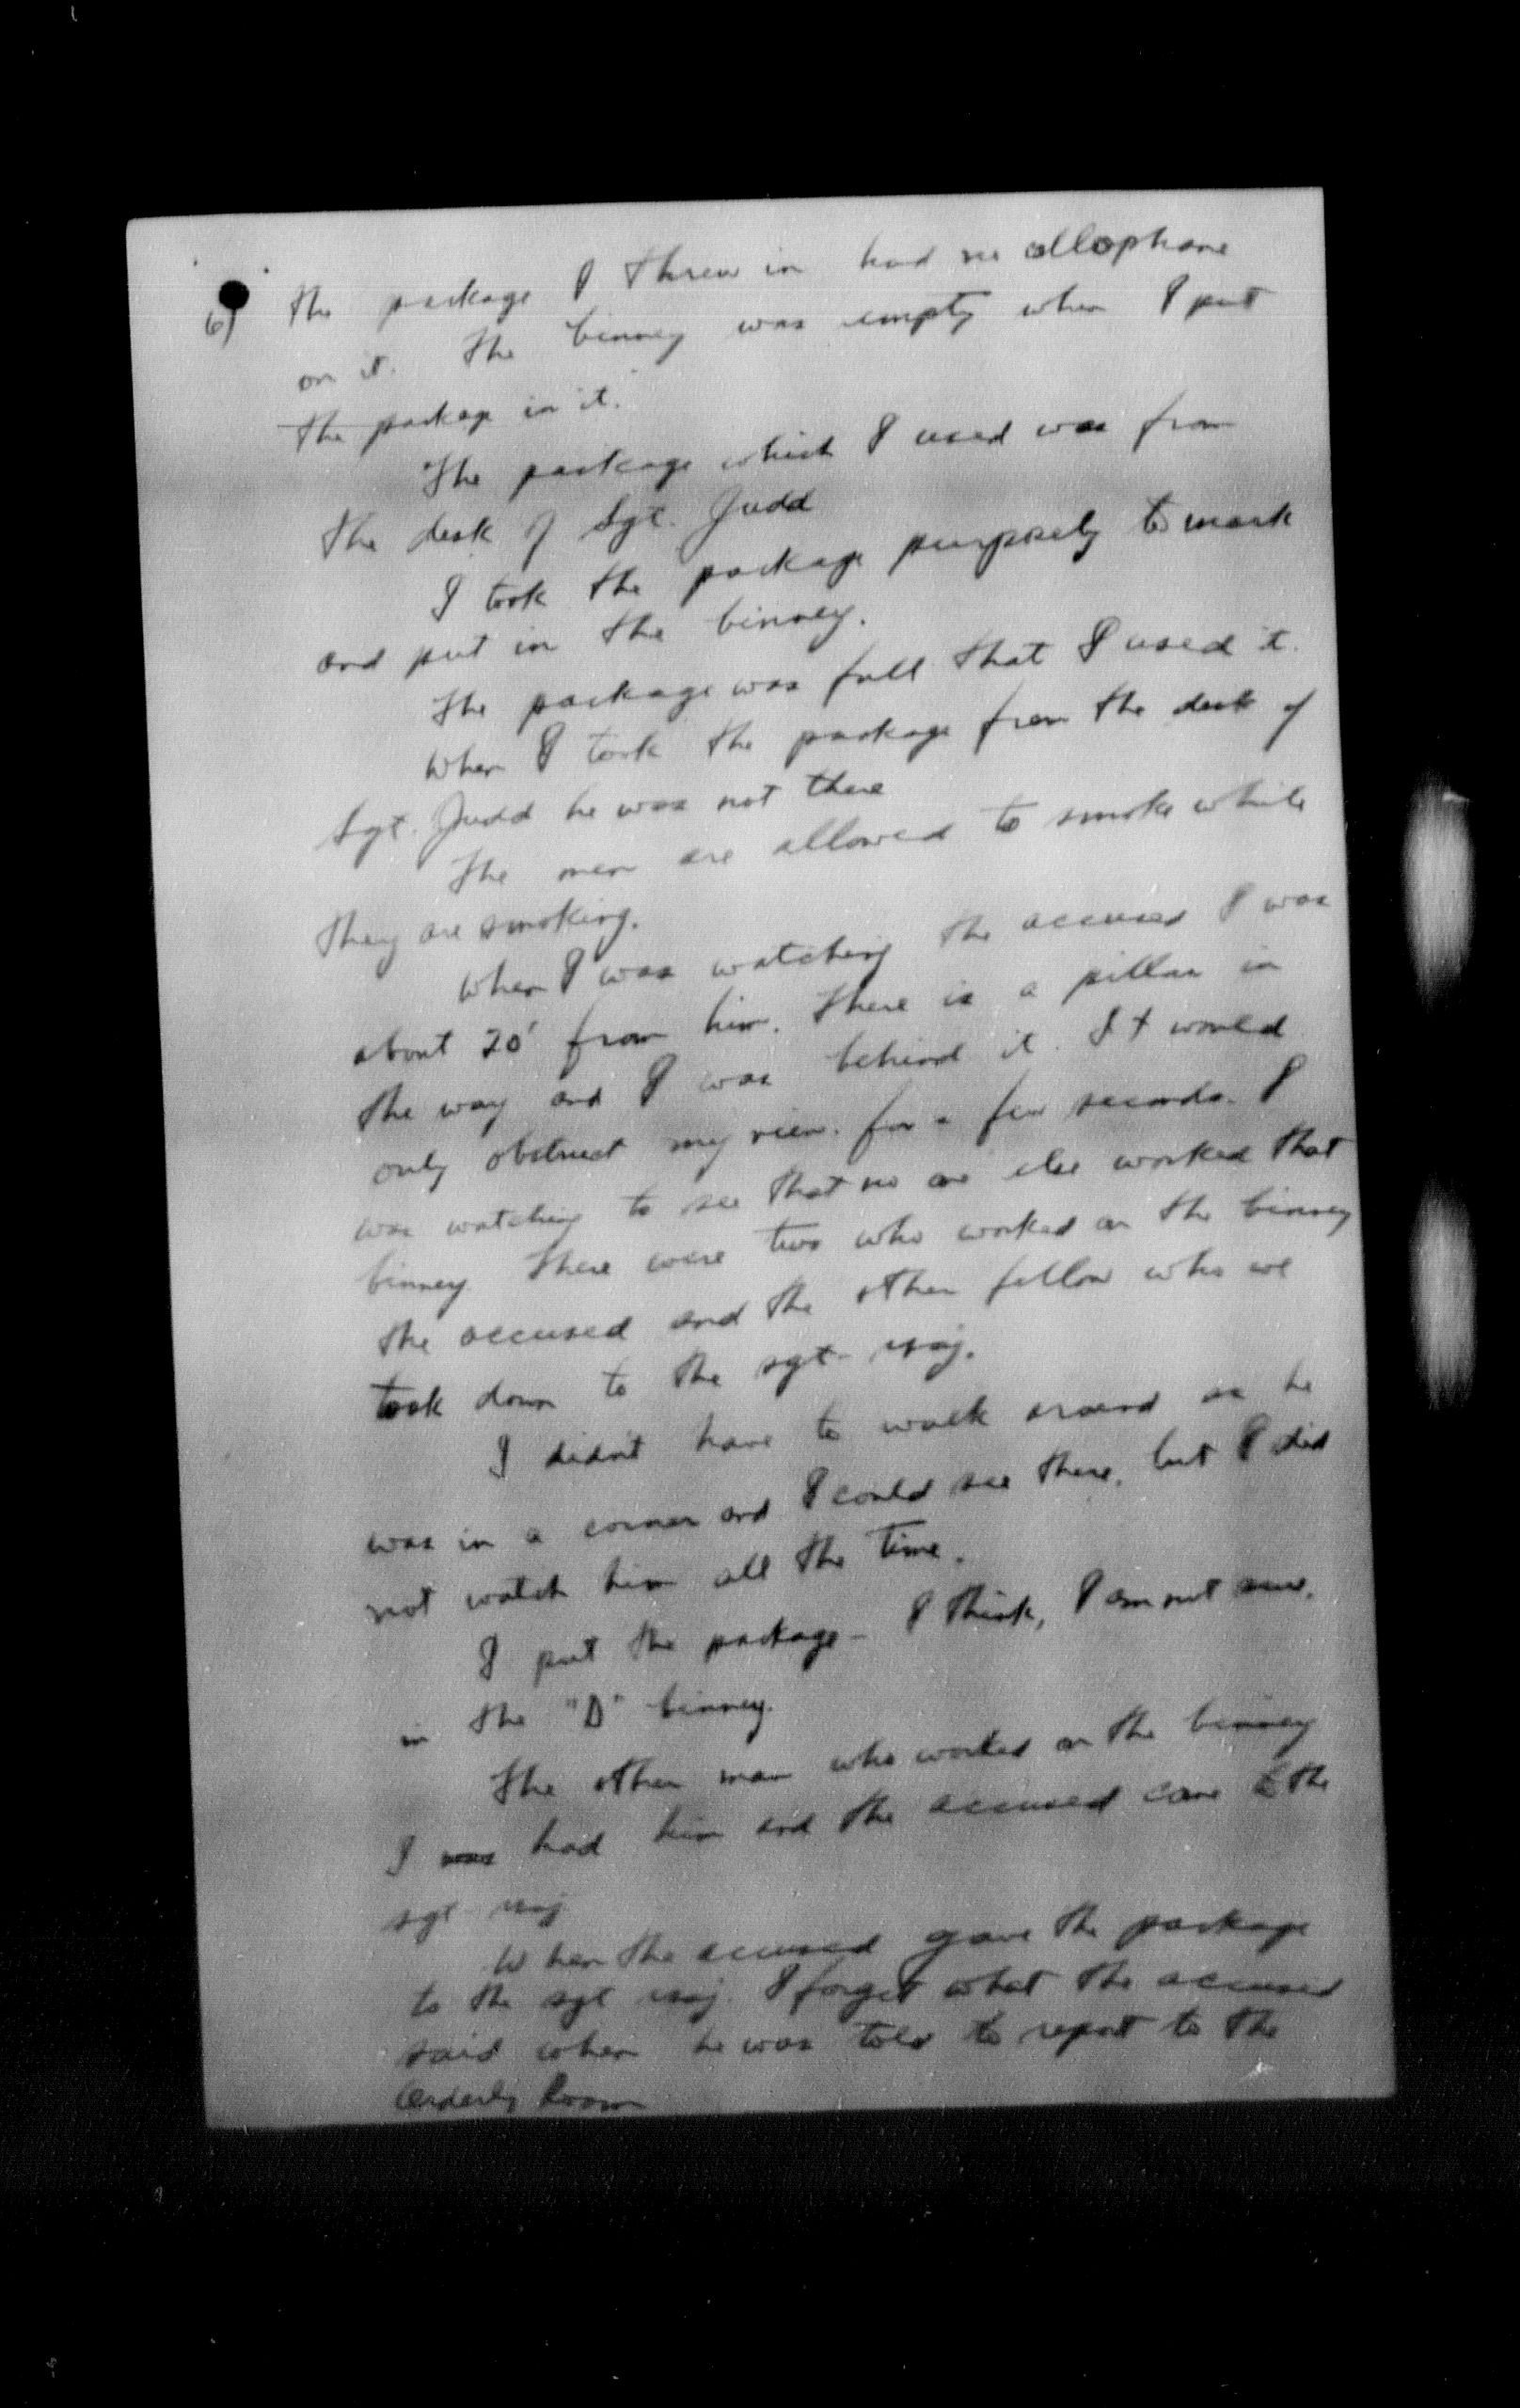 6)
The package I threw in had no cellophane
on it. The binney was empty when I put
the package in it.
The package which I used was from
the desk of Sgt. Judd
I took the package purposely to mark
and put in the binney.
The package was full that I used it.
When I took the package from the desk of
Sgt. Judd he was not there
The men are allowed to smoke while
they are smoking.
When I was watching the accused I was
about 20' from him. There is a pillar in
the way and I was behind it. It would
only obstruct my view for a few seconds. I
was watching to see that no one else worked that
binney. There were two who worked on the binney
the accused and the other fellow who we
took down to the sgt-maj.
I didn't have to walk around as he
was in a corner and I could see there, but I did
not watch him all the time.
I put the package - I think, I am not sure,
in the "D" binney.
The other man who worked on the binney
I was had him and the accused came to the
sgt maj
When the accused gave the package
to the sgt maj. I forget what the accused
said when he was told to report to the
Orderly Room